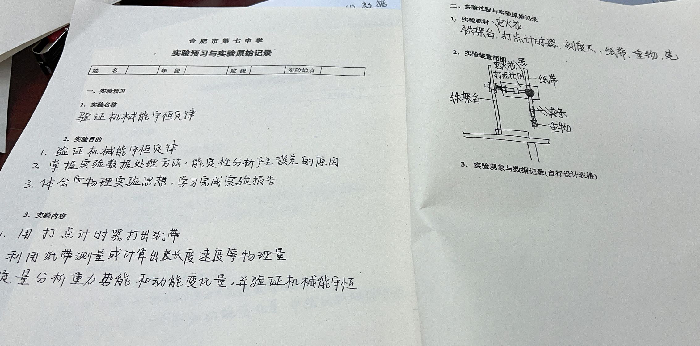 合肥市第七中学
实验预习与实验原始记录
姓 名 年 级 班 级 实验地点
一、实验预习
1. 实验名称
验证机械能守恒定律
2. 实验目的
1. 验证机械能守恒定律
2. 掌握实验数据处理方法,能定性分析产生误差的原因
3. 体会物理实验思想,学习完成实验报告
3. 实验内容
1. 用打点计时器打出纸带
利用纸带测量或计算出长度速度等物理量
定量分析重力势能和动能变化量,并验证机械能守恒
二、实验过程与实验原始记录
1. 实验器材
铁架台、打点计时器、刻度尺、纸带、重物、
2. 实验装置简图
打点计时器
纸带
铁架台
夹子
重物
3. 实验现象与数据记录(自行设计表格)